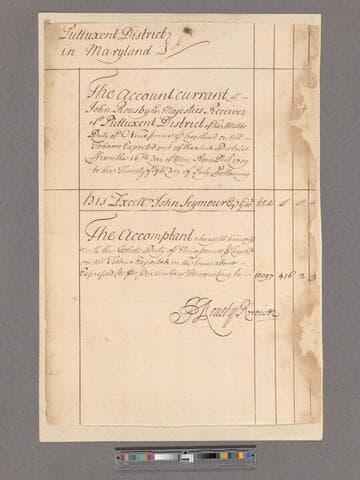 Puttuxent District
in Maryland Ss
The Account currant of
John Rousby her Majesties Receiver
of Puttuxent District of her Maties
Duty of Nine pence hogshead on all
Tobacco Exported out of the said District
From the 16th Day of May Anno Dom 1709
to the Twenty fifth Day of July Following
His Excelly John Seymour Esqr
The Accomptant chargeth himself
with the whole Duty of Nine pence hogshd
on all Tobacco Exported in the time above
Expressed as per particulars amounting to 10097 416 2
J Rousby Receiver